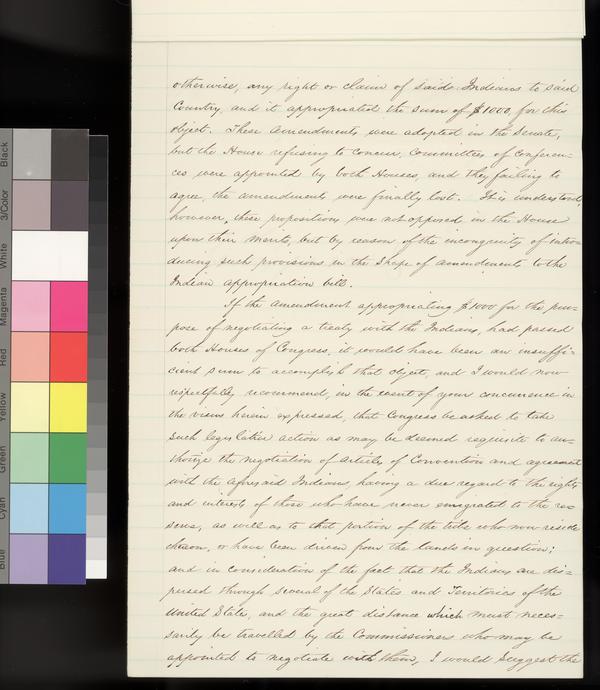 otherwise, any right or claim of said Indians to said
Country, and it appropriated the sum of $1000, for this
object. These amendments were adopted in the Senate,
but the House refusing to concur, Committees of Conferen-
ces were appointed by both Houses, and they failing to
agree, the amendments were finally lost. It is understood,
however, these propositions were not opposed in the House
upon their merits, but by reason of the incongruity of intro-
ducing such provisions in the shape of amendments to the
Indian appropriation bill.
If the amendment appropriating $1000 for the pur-
pose of negotiating a treaty with the Indians, had passed
both Houses of Congress, it would have been an insuffi-
cient sum to accomplish that object, and I would now
respectfully recommend, in the event of your concurrence in
the views herein expressed, that Congress be asked to take
such legislative action as may be deemed requisite to au-
thorize the negotiation of Articles of Convention and agreement
with the aforesaid Indians, having a due regard to the rights
and interests of those who have never emigrated to the re-
serve, as well as to that portion of the tribe who now reside
thereon, or have been driven from the lands in question;
and in consideration of the fact that the Indians are dis-
persed through several of the States and Territories of the
United States, and the great distance which must neces-
sarily be travelled by the Commissioners who may be
appointed to negotiate with them, I would suggest the
Black
3/Color
White
Magenta
Red
Yellow
Green
Cyan
Blue